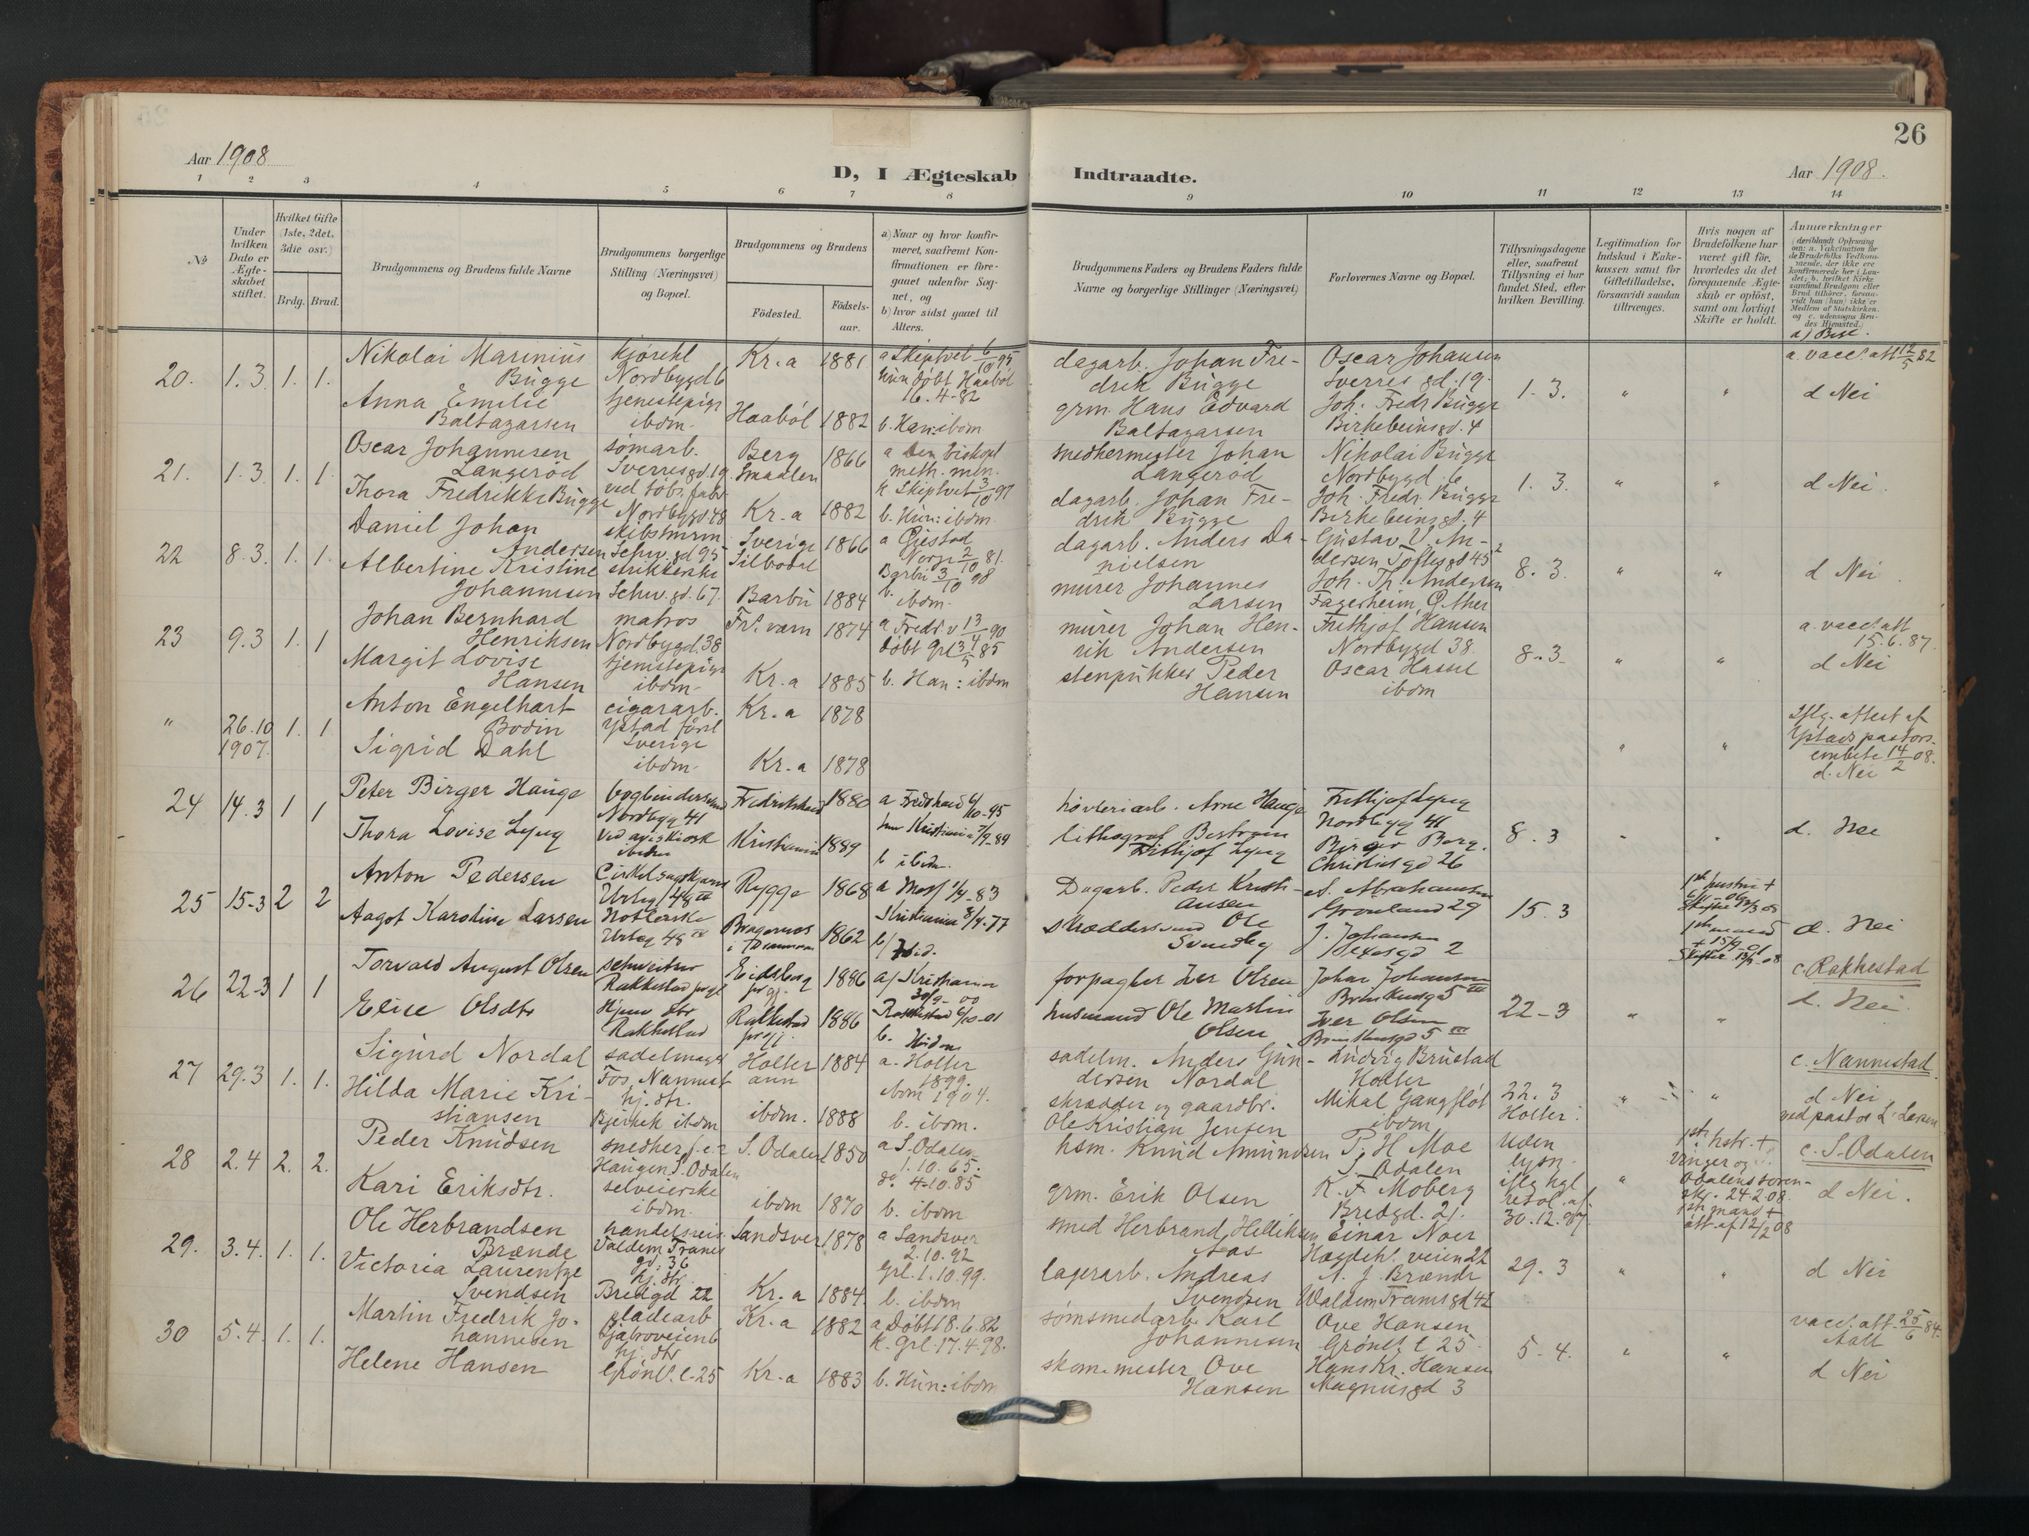 Aar 1908
D, I Ægteskab Indtraadte.
26
Aar 1908.
1 2 3 4 5 6 7 8 9 10 11 12 13 14
№
Under hvilken Dato er Ægteskabet stiftet.
Hvilket Gifte (1ste, 2det, 3die osv.)
Brdg. Brud.
Brudgommens og Brudens fulde Navne
Brudgommens borgerlige Stilling (Næringsvei) og Bopœl.
Brudgommens og Brudens
Födested.
Födsels-aar.
a) Naar og hvor konfirmeret, saafremt Konfirmationen er foregaaet udenfor Sognet, og
b) hvor sidst gaaet til Alters.
Brudgommens Faders og Brudens Faders fulde Navne og borgerlige Stillinger (Næringsvei)
Forlovernes Navne og Bopœl.
Tillysningsdagene eller, saafremt Tillysning ei har fundet Sted, efter hvilken Bevilling.
Legitimation for Indskud i Enkekassen samt for Giftetilladelse, forsaavidt saadan tiltrænges.
Hvis nogen af Brudefolkene har været gift för, hvorledes da det foregaaende Ægteskab er oplöst, samt om lovligt Skifte er holdt.
Anmærkninger
20. 1.3. 1. 1.
Nikolai Marinius Bugge
kjørekl Nordbygd 6
Kr.a 1881
a Skiptvet 6/10 95
Hun døbt Haabøl 16.4.82
dagarb. Johan Fredrik Bugge
Oscar Johansen Sverres gd. 19.
1.3.
" "
a. vacc. att 12/5 82
d Nei
Anna Emilie Baltazarsen
tjenestepige ibdm.
Haabøl 1882
b. Han: ibdm
grm. Hans Edvard Baltazarsen
Joh. Fredr Bugge Birkebeinsgd. 4
21. 1.3. 1. 1.
Oscar Johannesen Langerød
sømarb. Sverres gd. 19
Berg Smaalen 1866
meth. mln.
snedkermester Johan Langerød
Nikolai Bugge Nordbygd 6
1.3.
" "
d Nei.
Thora Fredrikke Bugge
Nordbygd. 48
Kr.a 1882
k Skiptvet 3/10 97
b. Hun: ibdm.
dagarb. Johan Fredrik Bugge
Joh. Fredr. Bugge Birkebeinsgd. 4
22 8.3. 1. 1.
Daniel Johan Andersen
Schw. gd 95
Sverige Silbodal 1866
dagarb. Anders Danielsen
Gustav V. Andersen Toftes gd 45
8.3.
" "
d Nei
Albertine Kristine Johannesen
Schw. gd. 67.
Barbu 1884
Barbu 3/10 98
b. ibdm.
murer Johannes Larsen
Joh. Th. Andersen Fagerheim,
23 9.3 1. 1
Johan Bernhard Henriksen
matros Nordbygd. 38
1874
a Fredr.v 13/4 90
murer Johan Henrik Andersen
Frithjof Hansen Nordbygd 38.
8.3.
" "
a. vacc. att 15.6.87.
d Nei
Margit Lovise Hansen
tjenestepige ibdm.
Kr.a 1885
b. Han: ibdm
stenpukker Peder Hansen
ibdm
" 26.10 1907. 1. 1.
Anton Engelhart Bodin
cigararb. Ystad
Sverige
Kr.a 1878
" "
Iflg. attest af Ystads pastorsembete 14/2 08.
d. Nei
Sigrid Dahl
ibdm.
Kr.a 1878
24 14.3 1 1
Peter Birger Hauge
bogbindersvend Nordbyg 41
Fredrikshald 1880
a Fredshald 4/10-95
Arne Hauge
Frithjof Lyng Nordbyg 41
8.3
" "
d. Nei
Thora Lovise Lyng
Kristiania 1889
b ibdm.
lithograf Frithjof Lyng
Birger Berg. Christiesgd 26
25 15-3 2 2
Anton Pedersen
Urteg 48 III
Rygge 1868
a Moss 83
Dagarb. Peder Kristiansen
A. Abrahamsen Grønland 29
15.3
d. Nei
Aagot Karoline Larsen
Urteg 48 IV
Bragernes i Drammen 1862
b/ Ibid.
skræddersvend Ole Svendby
J. Johansen 2
26 22-3 1 1
Torvald August Olsen
schweitser Rakkestad prgj
Eidsberg prgj. 1886
a/ Kristiania 30/9-00
forpagter Iver Olsen
Johan Johansen
22-3
" "
c. Rakkestad
d. Nei
Elise Olsdtr
Hjem. str Rakkestad
Rakkestad prgj. 1886
b.
husmand Ole Martin Olsen
Iver Olsen
27 29.3 1. 1.
Sigurd Nordal
sadelmager Fos, Nannest
Holter ann 1884
a. Holter 1899.
ibdm 1904.
sadelm. Anders Gundersen Nordal
Ludvig Brustad Holter
22.3 Holter
" "
c. Nannestad.
d Nei
ved pastor L. Larsen
Hilda Marie Kristiansen
hj. str. Bjerkek ibdm
ibdm. 1888
b. ibdm.
skrædder og gaardbr. Ole Kristian Jensen
Mikal Gangfløt ibdm
28 2.4 2. 2.
Peder Knudsen
snedker f.e.r Haugen S. Odalen
S. Odalen 1850
a S. Odalen 1.10.65.
do 4.10.85
hsm. Knud Amundsen
P. H. Moe S. Odalen
uden lysn. iflg kgl resol. af 30.12.97
"
1ste hstr. +
24 2 08.
1st mand + att. af 12/2 08
c. S. Odalen
d Nei.
Kari Eriksdtr.
selveierske ibdm.
ibdm 1870
b. ibdm
grm. Erik Olsen
K. F. Moberg Bredgd. 21.
29. 3.4. 1. 1.
Ole Herbrandsen Brænde
handelsreis Valdem Tranes gd: 36
Sandsver 1878
a Sandsver 2.10.92
Grl. 1.10.99.
smed Herbrand Helliksen Aas
Einar Noer Hegdeh. veien 22
29.3
" "
d Nei
Victoria Laurentze Svendsen
hj. str. Bredgd 22
Kr.a 1884.
b. ibdm
lagerarb. Andreas Svendsen
A. J. Brænde Waldem Tranes gd 42
30 5.4. 1. 1.
Martin Fredrik Johannesen
pladearb
Kr.a 1882
a Døbt 18.6.82
k. Grl. 17.4.98.
sømsmedarb. Karl Johannesen
Ove Hansen Grønl. l 25
5-4.
" "
vacc. att. 25/6 84.
d Nei
Helene Hansen
hj. str Grønl. l-25
Kr.a 1883
b. Hun: ibdm
skom. mester Ove Hansen
Hans Kr. Hansen Magnusgd 3